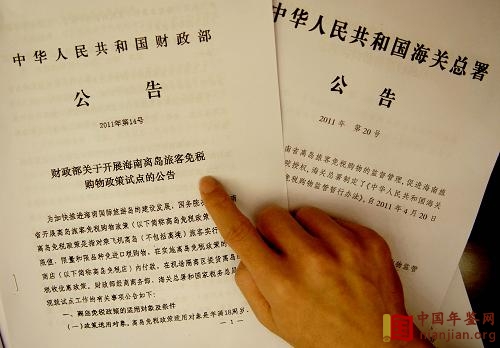 中华人民共和国财政部
公 告
2011年第14号
财政部关于开展海南离岛旅客免税
购物政策试点的公告
为加快推进海南国际旅游岛的建设发展,国务院
省开展离岛旅客免税购物政策(以下简称离岛免税政策
离岛免税政策是指对乘飞机离岛(不包括离境)旅客实行
限值、限量和限品种免进口税购物,在实施离岛免税政策的
商店(以下简称离岛免税店)内付款,在机场隔离区提货离岛的
税收优惠政策。财政部经商商务部、海关总署和国家税务总局
现就试点工作的有关事项公告如下:
一、离岛免税政策的适用对象及条件
(一)政策适用对象。离岛免税政策适用对象是年满18周岁、
— 1 —
中华人民共和国海关总署
公 告
2011年 第20号
南省离岛旅客免税购物的监督管理,促进海南旅
院授权,海关总署制定了《中华人民共和国海
免税购物监管暂行办法》,自2011年4月20日
物监管
中国年鉴网
nianjian.org